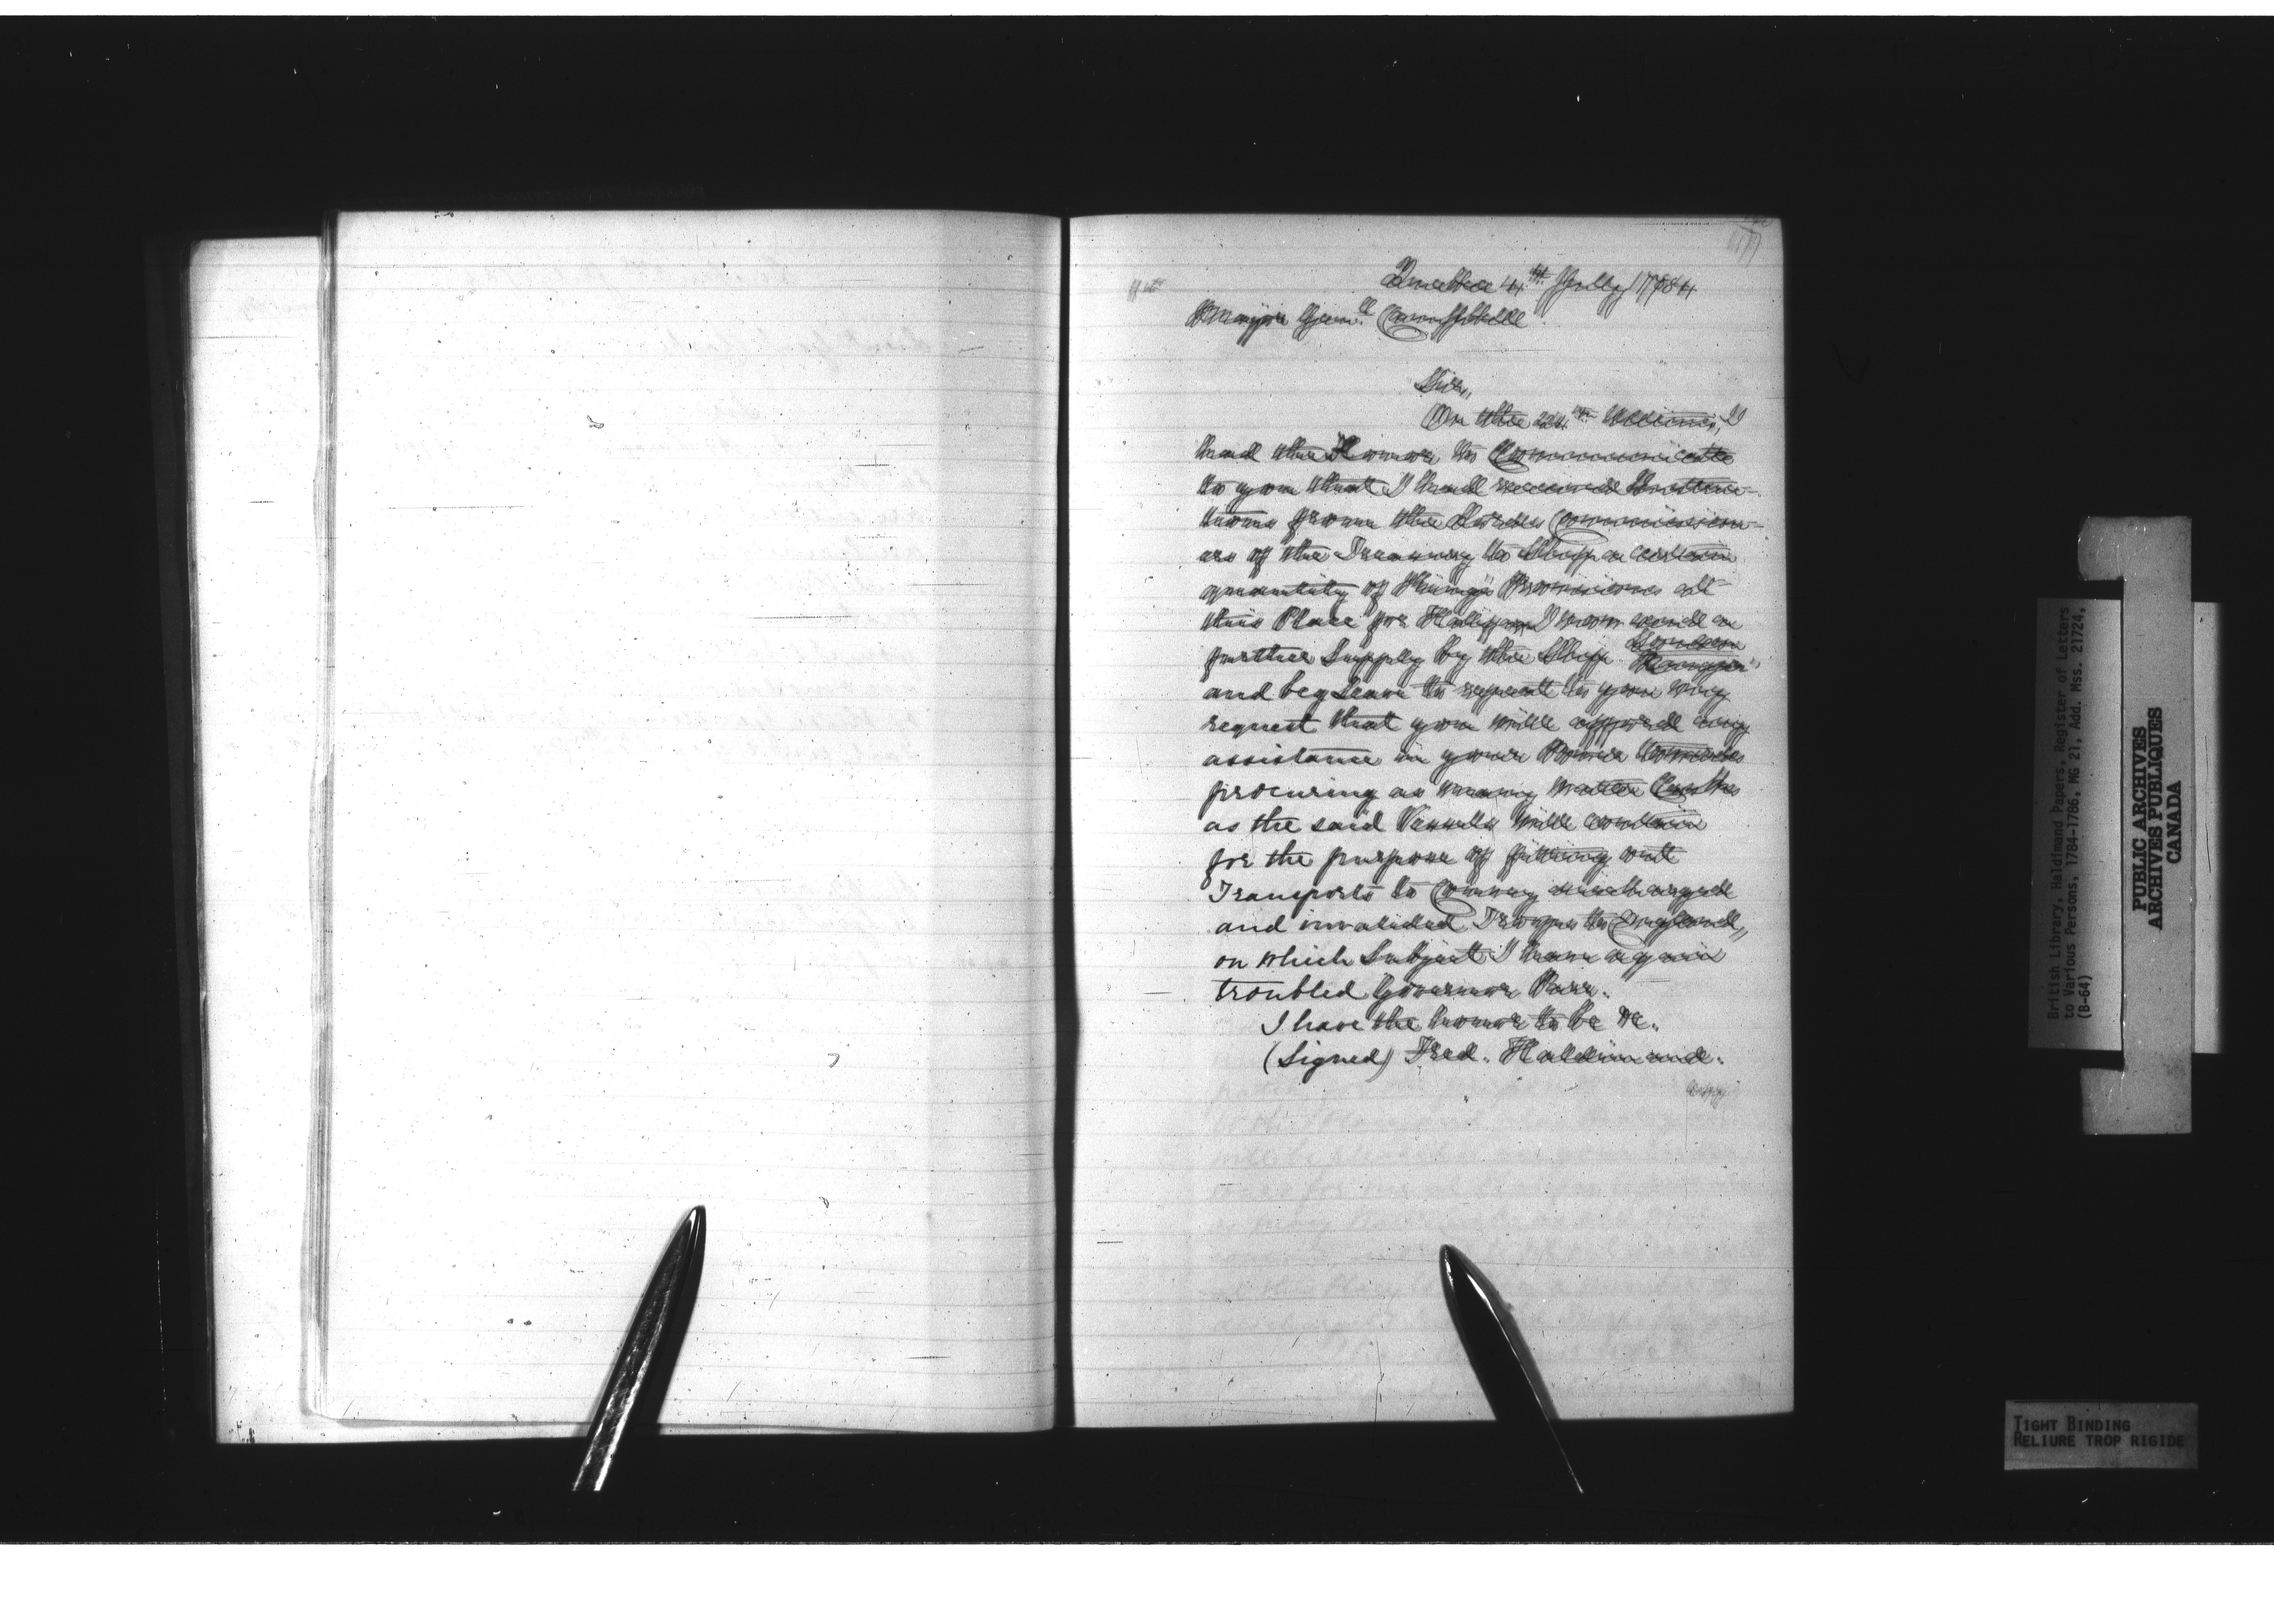 Quebec 4th July 1784
Major Genll Campbell
Sir,
On the 24th Ultimo, I
had the Honor to Communicate
to you that I had received Instruc-
tions from the Lords Commission-
ers of the Treasury to Ship a certain
quantity of King's Provisions at
this Place for Halifax, I now send a
further Supply by the Ship London
Ranger"
and beg leave to repeat to you my
request that you will afford any
assistance in your Power towards
procuring as many water Casks
as the said Vessels will contain
for the purpose of fitting out
Transports to Convey discharged
and invalided Troops to England,
on which Subject I have again
troubled Governor Parr.
I have the honor to be &c.
(Signed) Fred. Haldimand.
British Library, Haldimand Papers, Register of Letters
to Various Persons, 1784-1786, MG 21, Add. Mss. 21724,
(B-64)
PUBLIC ARCHIVES
ARCHIVES PUBLIQUES
CANADA
TIGHT BINDING
RELIURE TROP RIGIDE